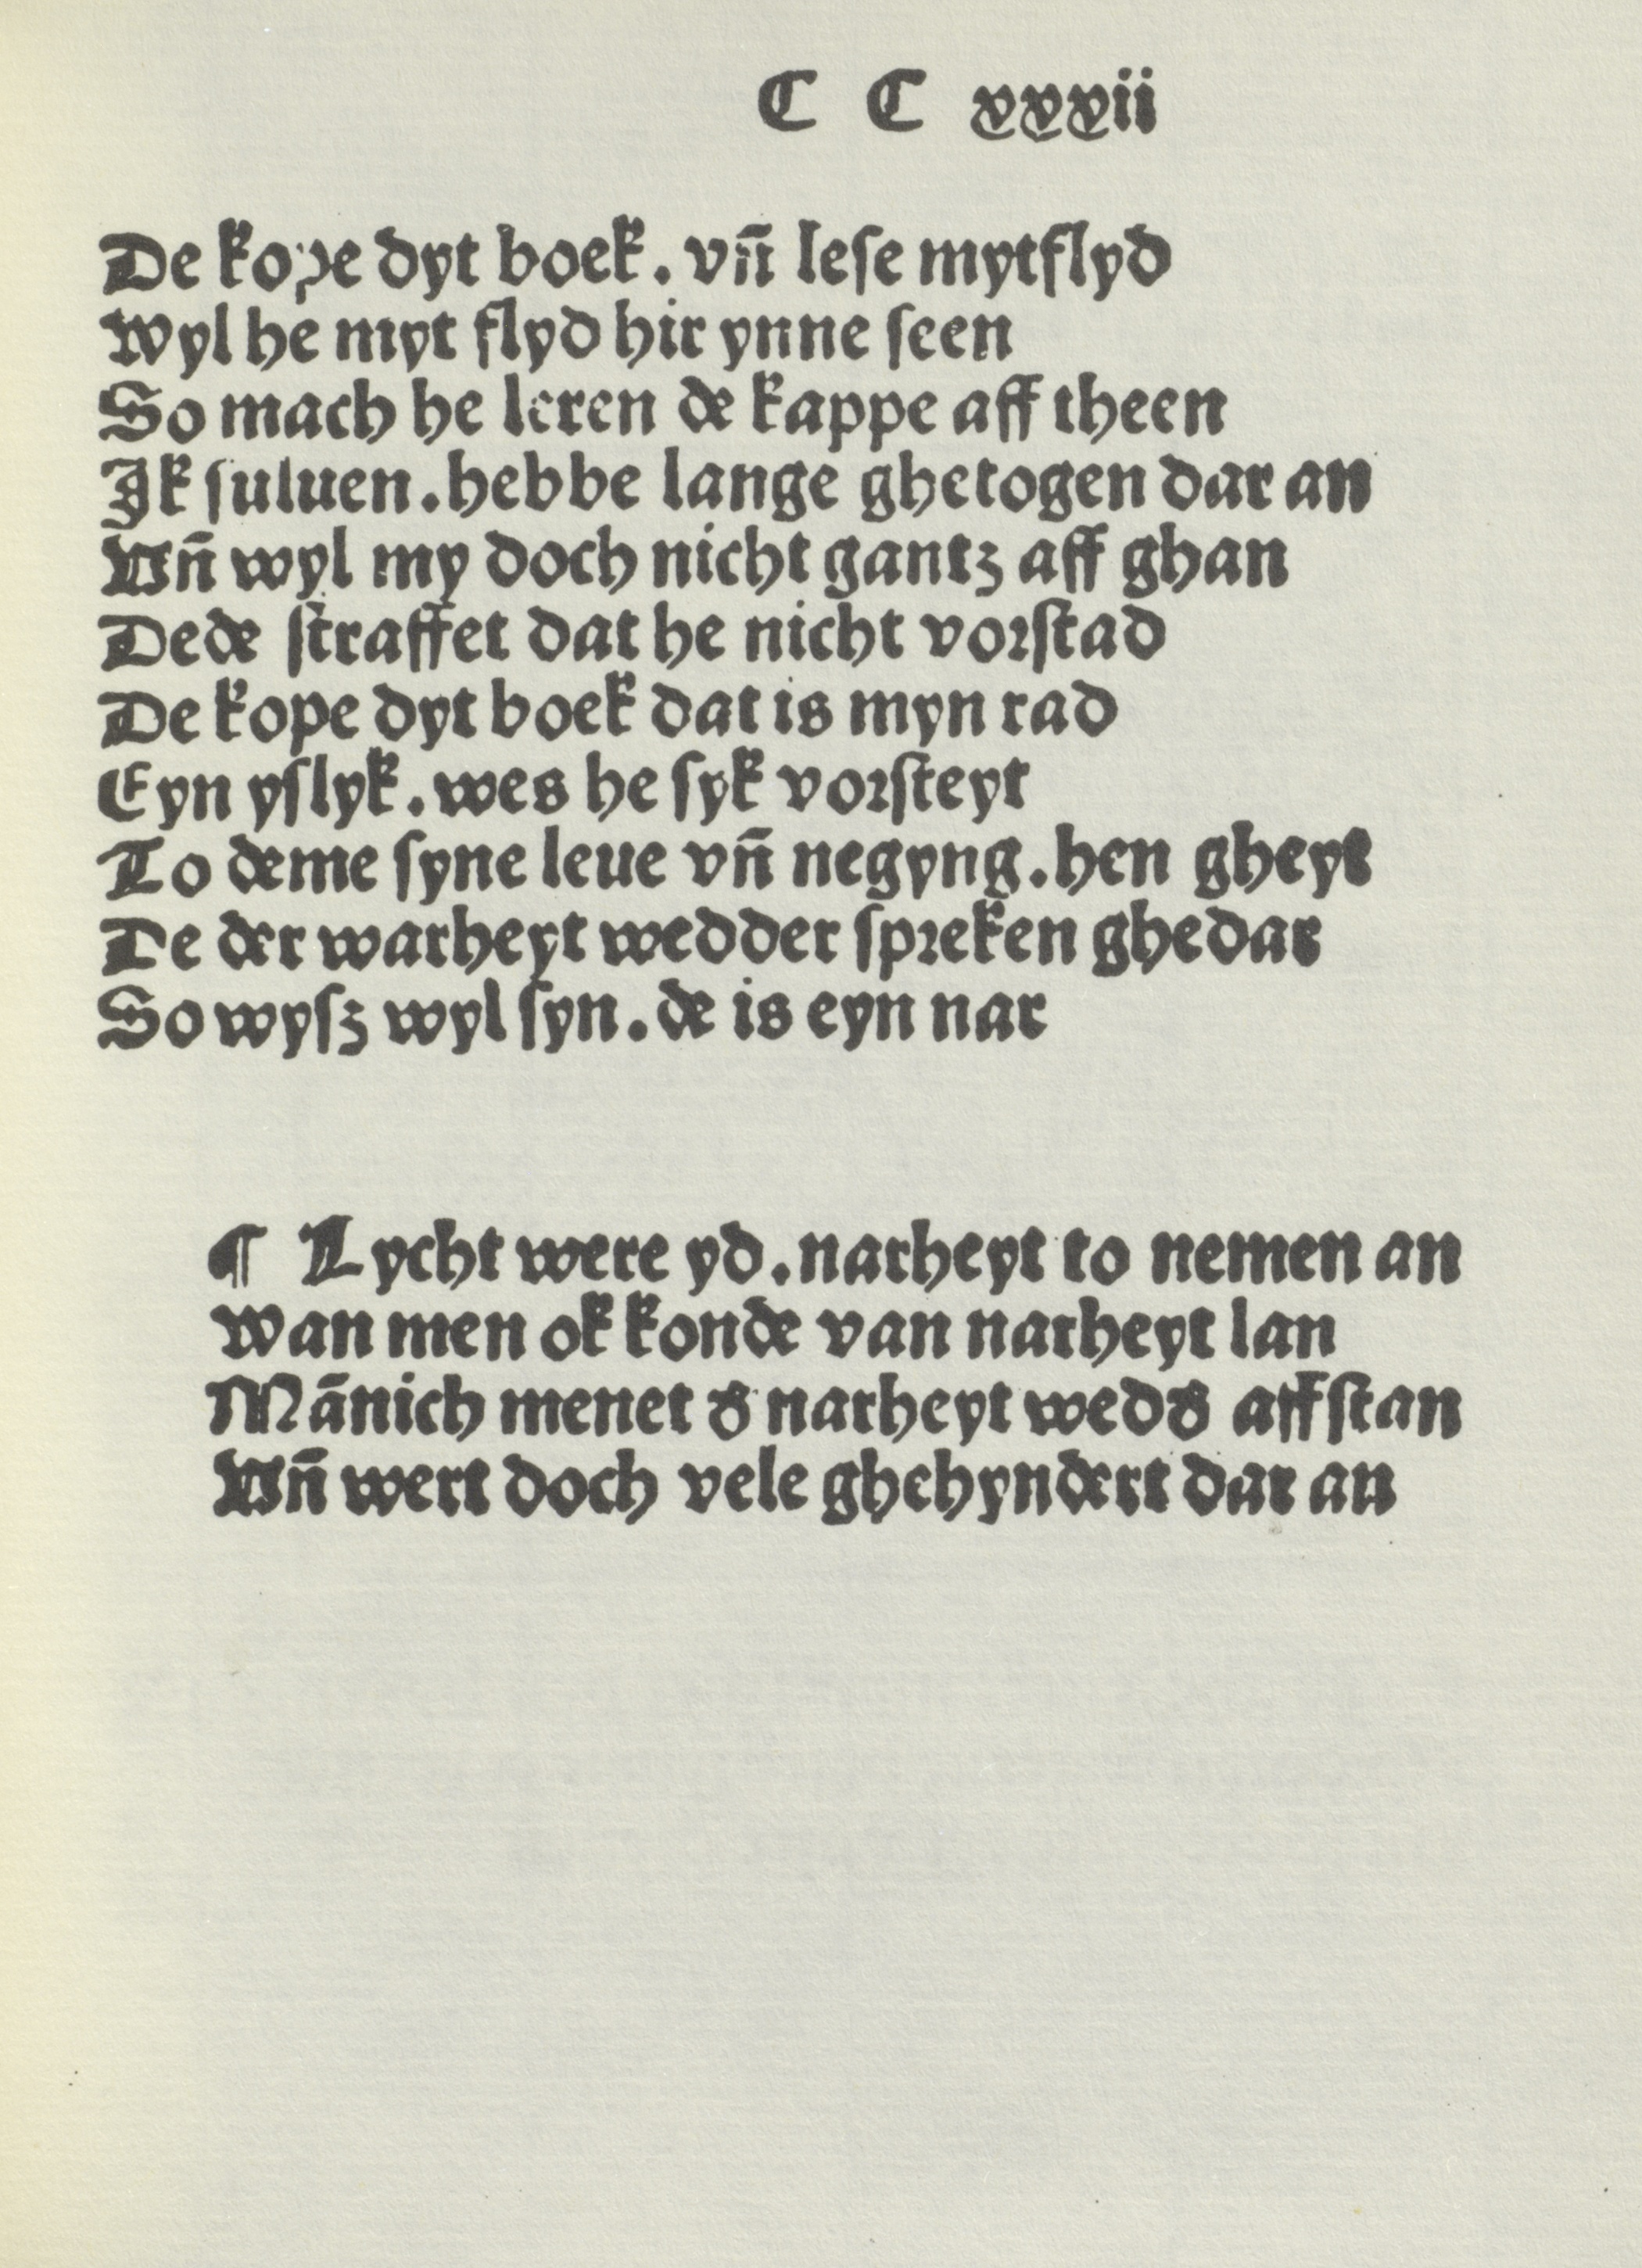 C C xxxii
De kope dyt boek. vñ leſe mytflyd
Wyl he myt flyd hir ynne ſeen
So mach he leren de kappe aff theen
Ik ſuluen. hebbe lange ghetogen dar an
Vñ wyl my doch nicht gantz aff ghan
Dede ſtraffet dat he nicht vorſtad
De kope dyt boek dat is myn rad
Eyn yſlyk. wes he ſyk vorſteyt
To deme ſyne leue vñ negyng. hen gheyt
De der warheyt wedder ſpreken ghedar
So wyſz wyl ſyn. de is eyn nar
¶ Lycht were yd. narheyt to nemen an
Wan men ok konde van narheyt lan
Mānich menet đ narheyt wedđ affſtan
Vñ wert doch vele ghehyndert dar an